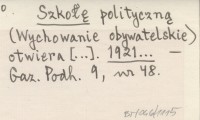 Szkołę polityczną
(Wychowanie obywatelskie)
otwiera [...]. 1921... —
Gaz. Podh. 9, nr 48.